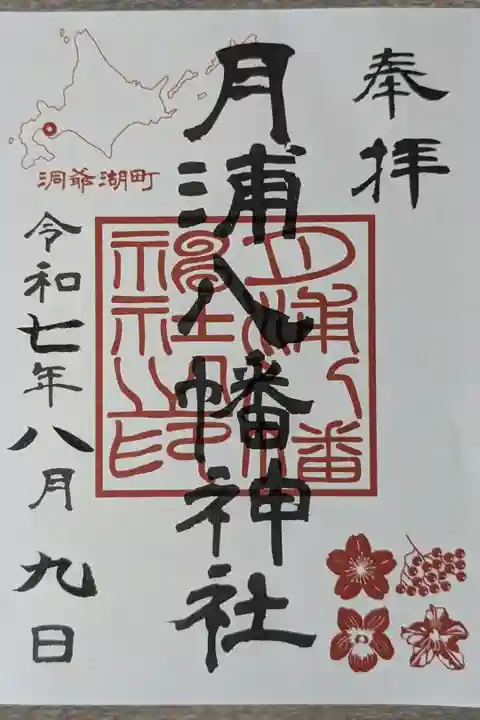 奉拝
月浦八幡神社
洞爺湖町
令和七年八月九日